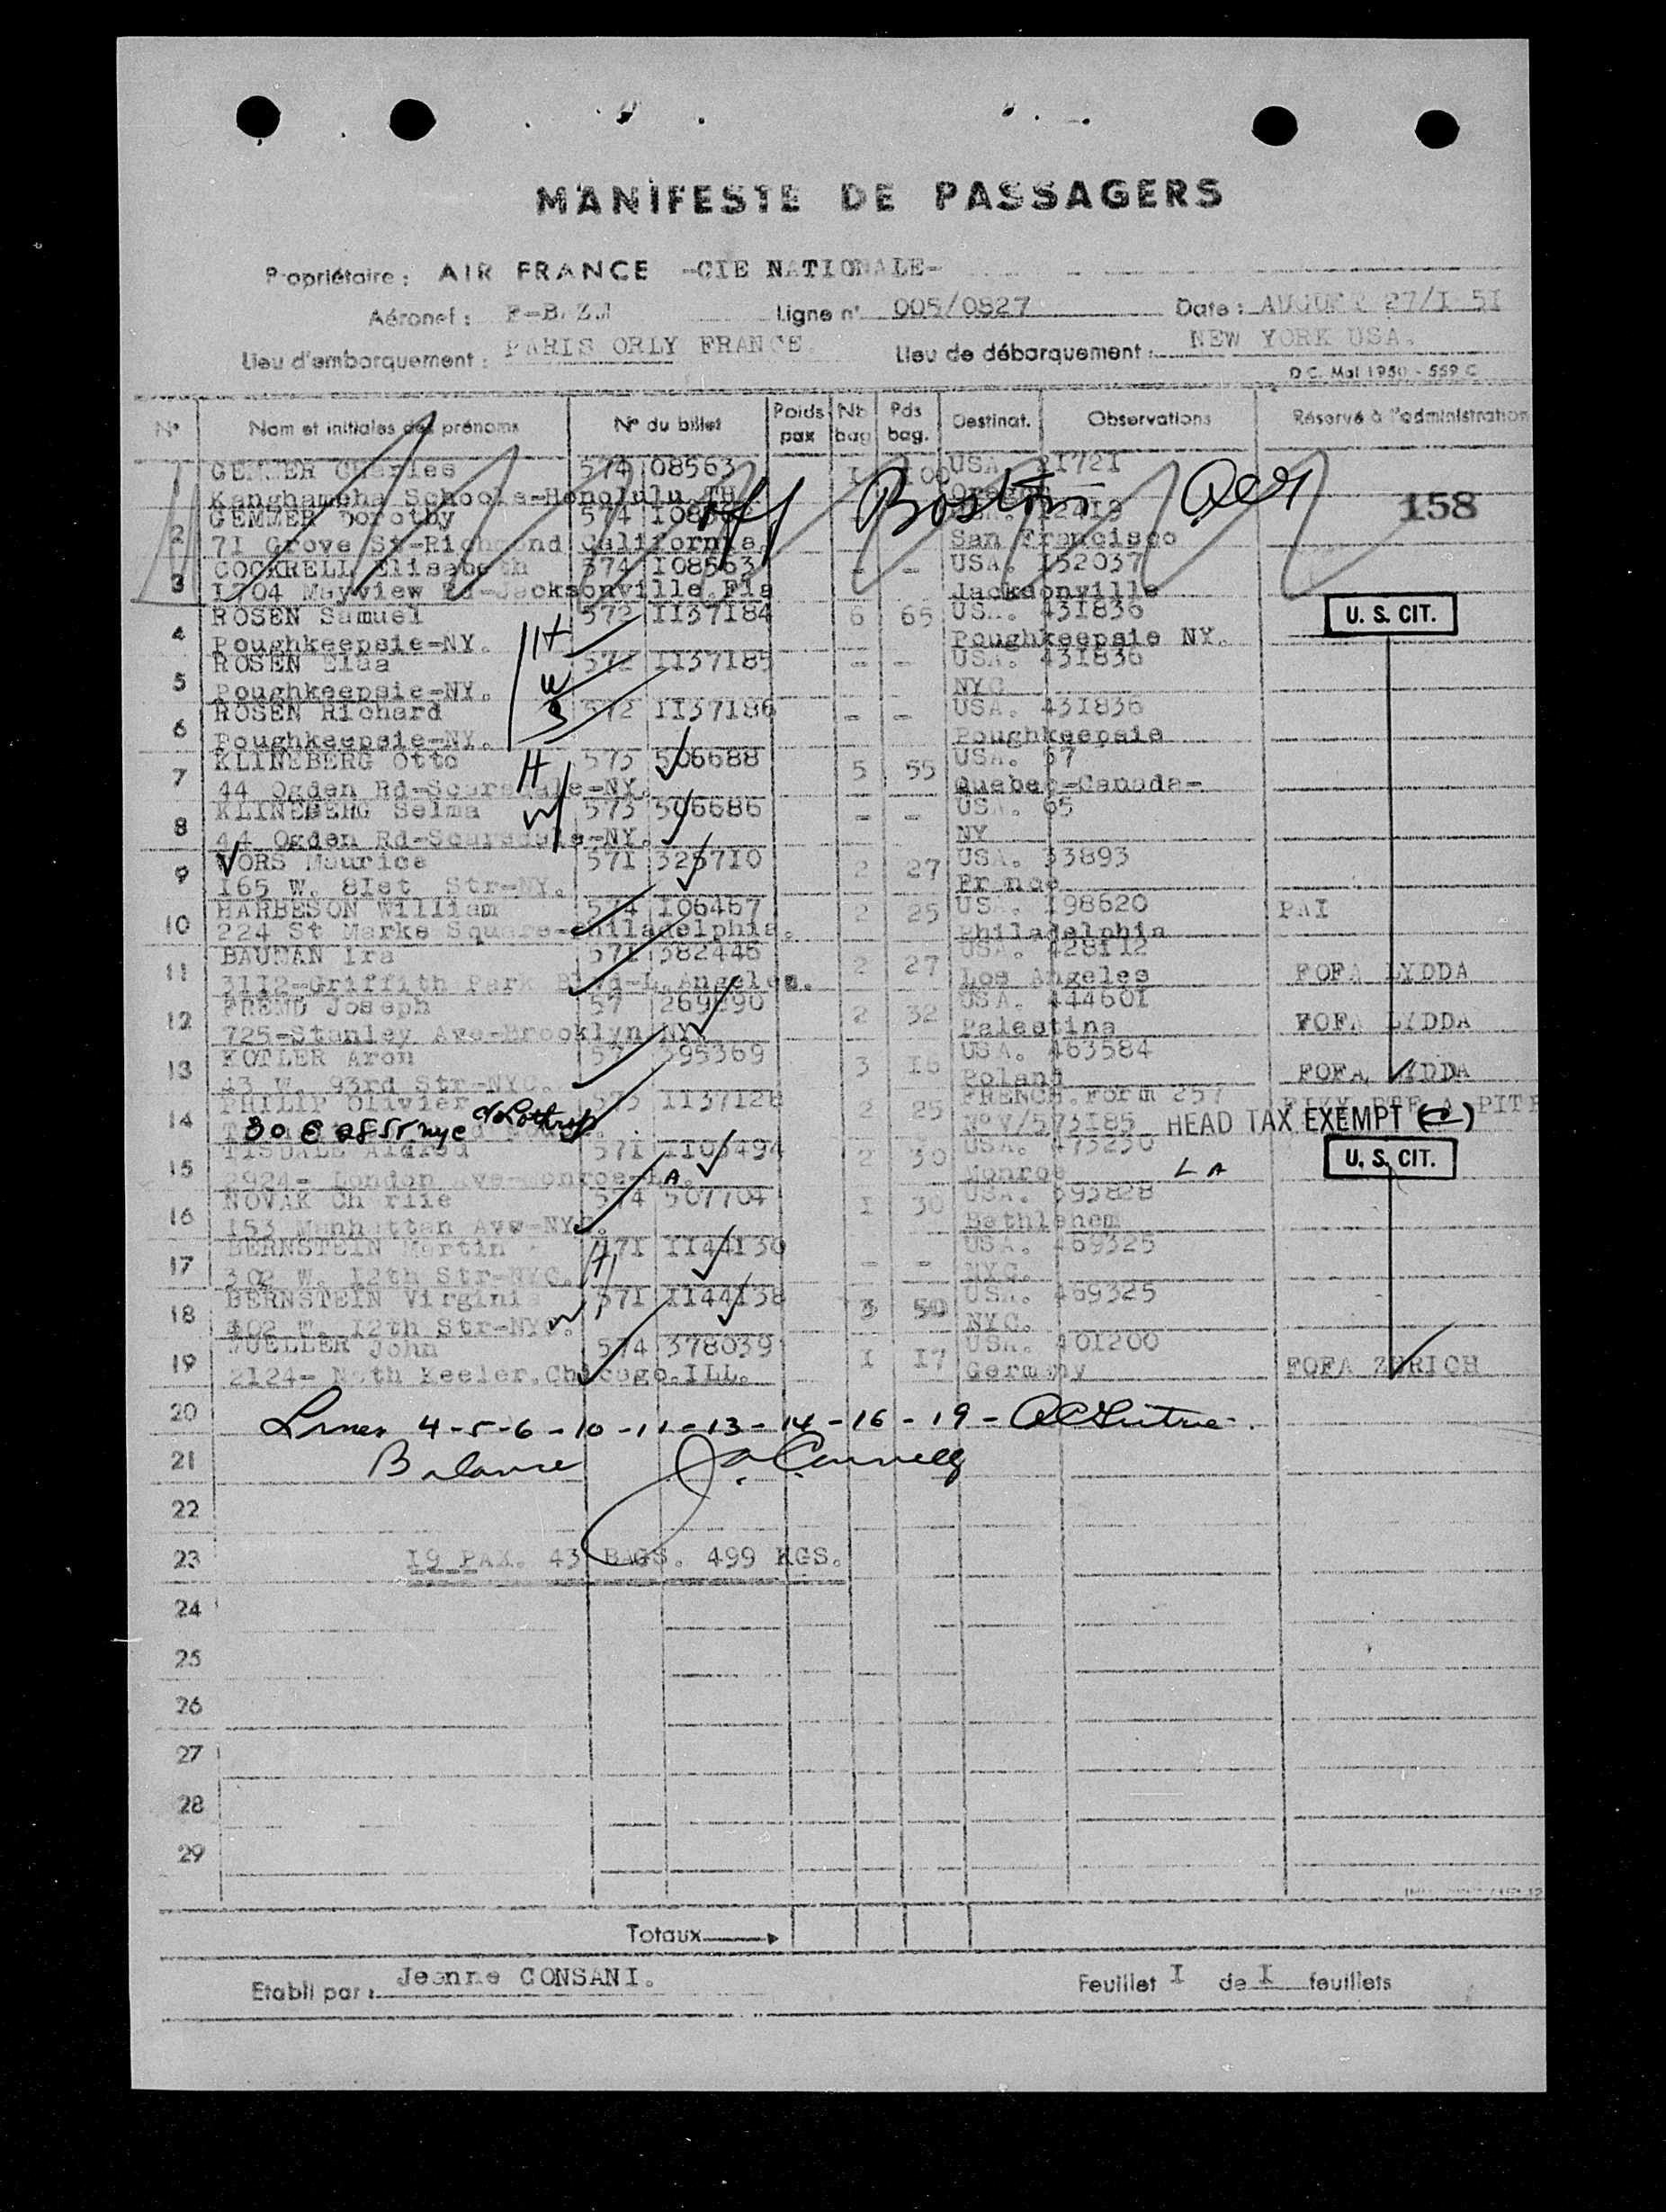 MANIFESTE DE PASSAGERS
Propriétaire : AIR FRANCE -CIE NATIONALE-
Aéronef : Ligne n° 005/0827 Date : AUGUST 27/I 5I
Lieu d'embarquement : PARIS ORLY FRANCE. Lieu de débarquement : NEW YORK USA.
D C. Mai 1950 - 559 C
N° Nom et initiales des prénoms N° du billet Poids pax Nb bag Pds bag. Destinat. Observations Réservé à l'administration
1 GEMMER Charles 574 08563 I 100 USA. 21721
Schools-Honolulu TH Oregon
off Boston
158
2 GEMMER Dorothy 574
7I Grove St-Richmond California San Francisco
3 COCKRELL Elisabeth 574 I08563 - - USA. I52037
I704 Mayview Rd-Jacksonville Fla Jacksonville
4 ROSEN Samuel 572 II37I84 6 65 US. 43I836 U. S. CIT.
Poughkeepsie-NY. H Poughkeepsie NY.
5 ROSEN 572 II37I85 - - USA. 43I836
Poughkeepsie-NY. W NYC
6 ROSEN Richard 572 II37I86 - - USA. 43I836
Poughkeepsie-NY. S Poughkeepsie
7 KLINEBERG Otto H 573 506688 5 55 USA. 57
44 Ogden Rd-Scarsdale-NY. Quebec-Canada-
8 KLINEBERG Selma W 573 506686 - - USA. 65
44 Ogden Rd-Scarsdale-NY. NY
9 VORS Maurice 57I 3267I0 2 27 USA. 33893
I65 W. 8Ist Str-NY. France
10 HARBESON William 574 I06467 2 25 USA. I98620 PAI
224 St Marks Square-Philadelphia. Philadelphia
11 BAUMAN Ira 57I 382446 2 27 USA. 428II2
3II2-Griffith Park Blvd-L.Angeles. Los Angeles FOFA LYDDA
12 FREND Joseph 57 269890 2 32 USA. 44460I
725-Stanley Ave-Brooklyn NY Palestina FOFA LYDDA
13 KOTLER Aron 57 395369 3 I6 USA. 463584
43 W. 93rd Str-NYC. Poland FOFA LYDDA
14 PHILIP Olivier 573 II37I28 2 25 FRENCH.Form 257
30 E nyc c/o Lothrop N°V/573I85 HEAD TAX EXEMPT
15 TISDALE Aldred 57I II03494 2 30 USA. 473230 U. S. CIT.
2924- London Ave-Monroe-LA. Monroe L A
16 NOVAK Charlie 574 507704 I 30 USA. 393828
I53 Manhattan Ave-NYC. Bethlehem
17 BERNSTEIN Martin 57I II44I36 - - USA. 469325
302 W. I2th Str-NYC. H NYC.
18 BERNSTEIN Virginia 57I II44I38 3 50 USA. 469325
302 W. I2th Str-NYC. W NYC.
19 MUELLER John 574 378039 I I7 USA. 40I200
2I24- Noth Keeler.Chicago.ILL. Germany FOFA ZURICH
20 Lines 4-5-6-10-11-13-14-16-19-
21 Balance
22
23 I9 PAX. 43 BAGS. 499 KGS.
24
25
26
27
28
29
Totaux
Etabli par : Jeanne CONSANI. Feuillet I de I feuillets